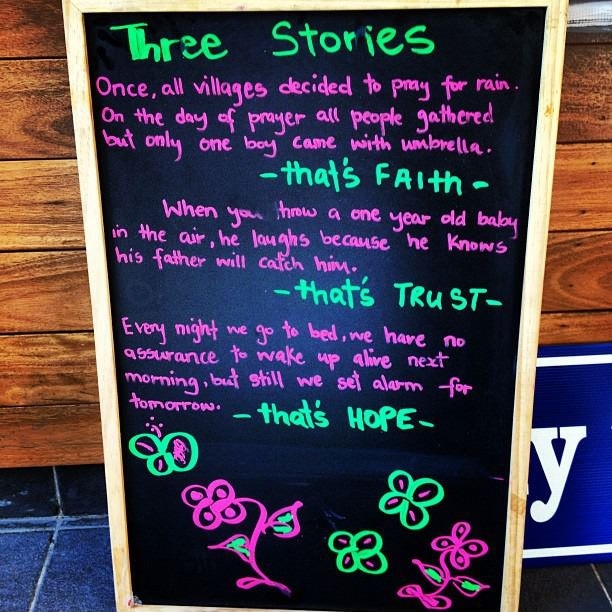 Three Stories
Once, all villages decided to pray for rain.
On the day of prayer all people gathered
but only one boy came with umbrella.
- that's FAITH -
When you throw a one year old baby
in the air, he laughs because he knows
his father will catch him.
- that's TRUST -
Every night we go to bed, we have no
assurance to wake up alive next
morning, but still we set alarm for
tomorrow. - that's HOPE -
y